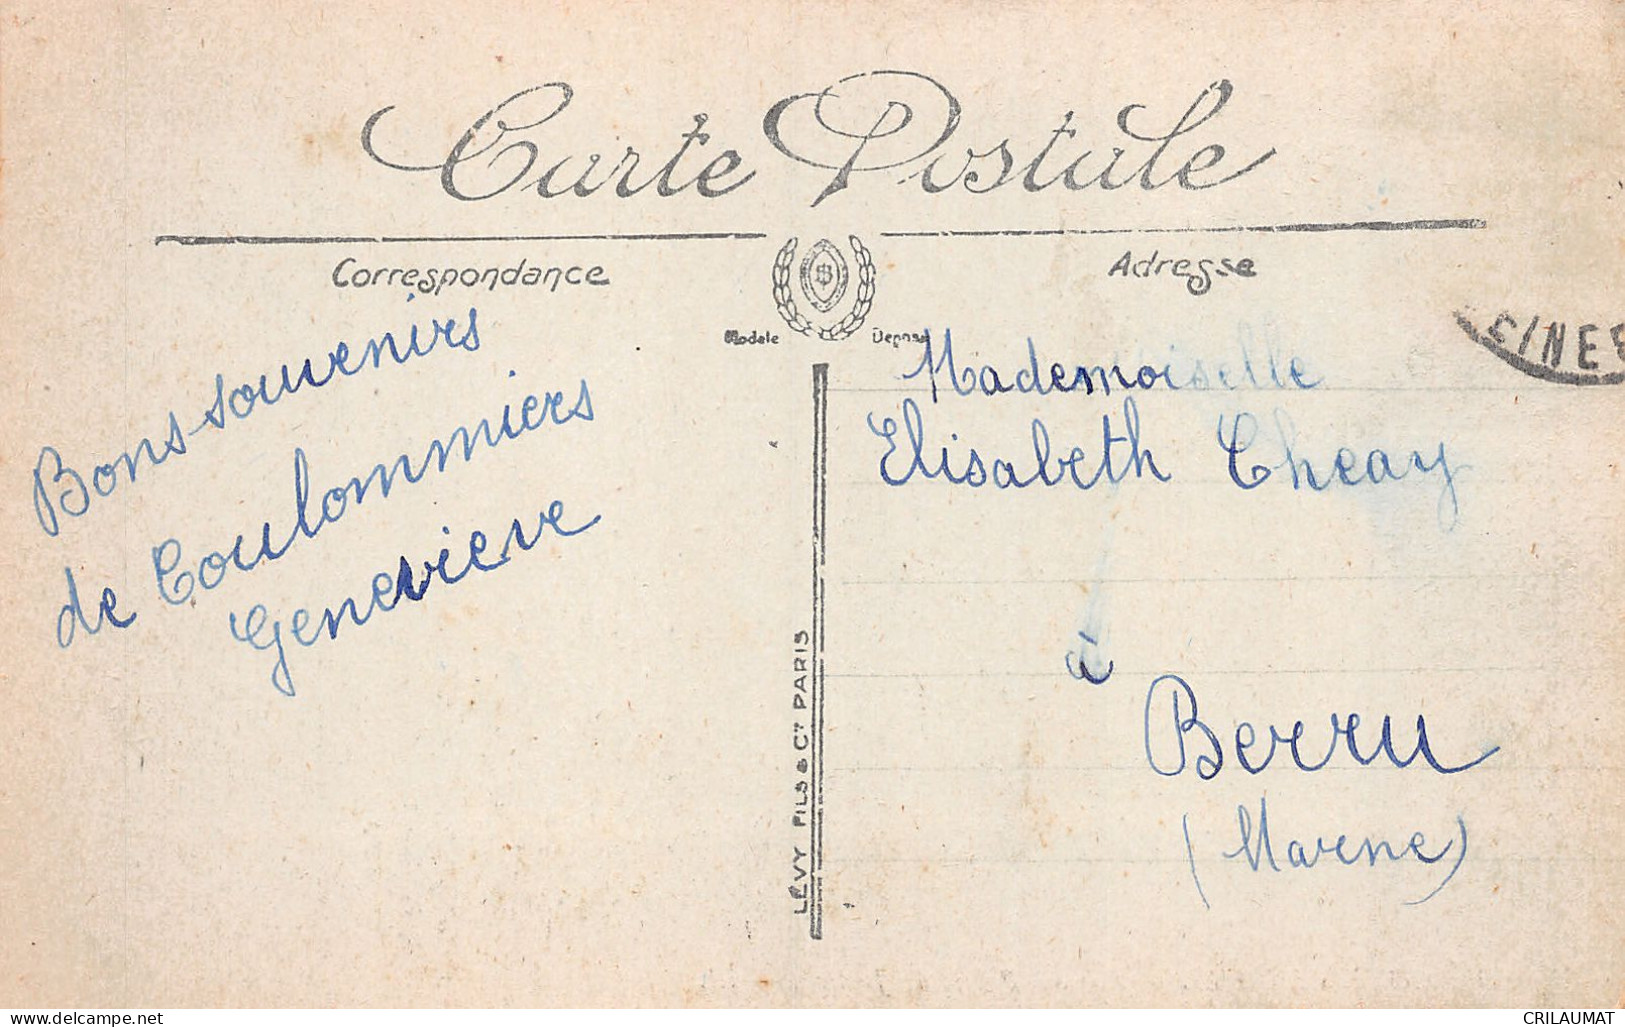 Carte Postale
Correspondance
Adresse
Modele Depose
Bons souvenirs
de Coulommiers
Geneviève
LÉVY FILS & Cie PARIS
Mademoiselle
Elisabeth Cheay
à
Berru
(Marne)
www.delcampe.net
CRILAUMAT